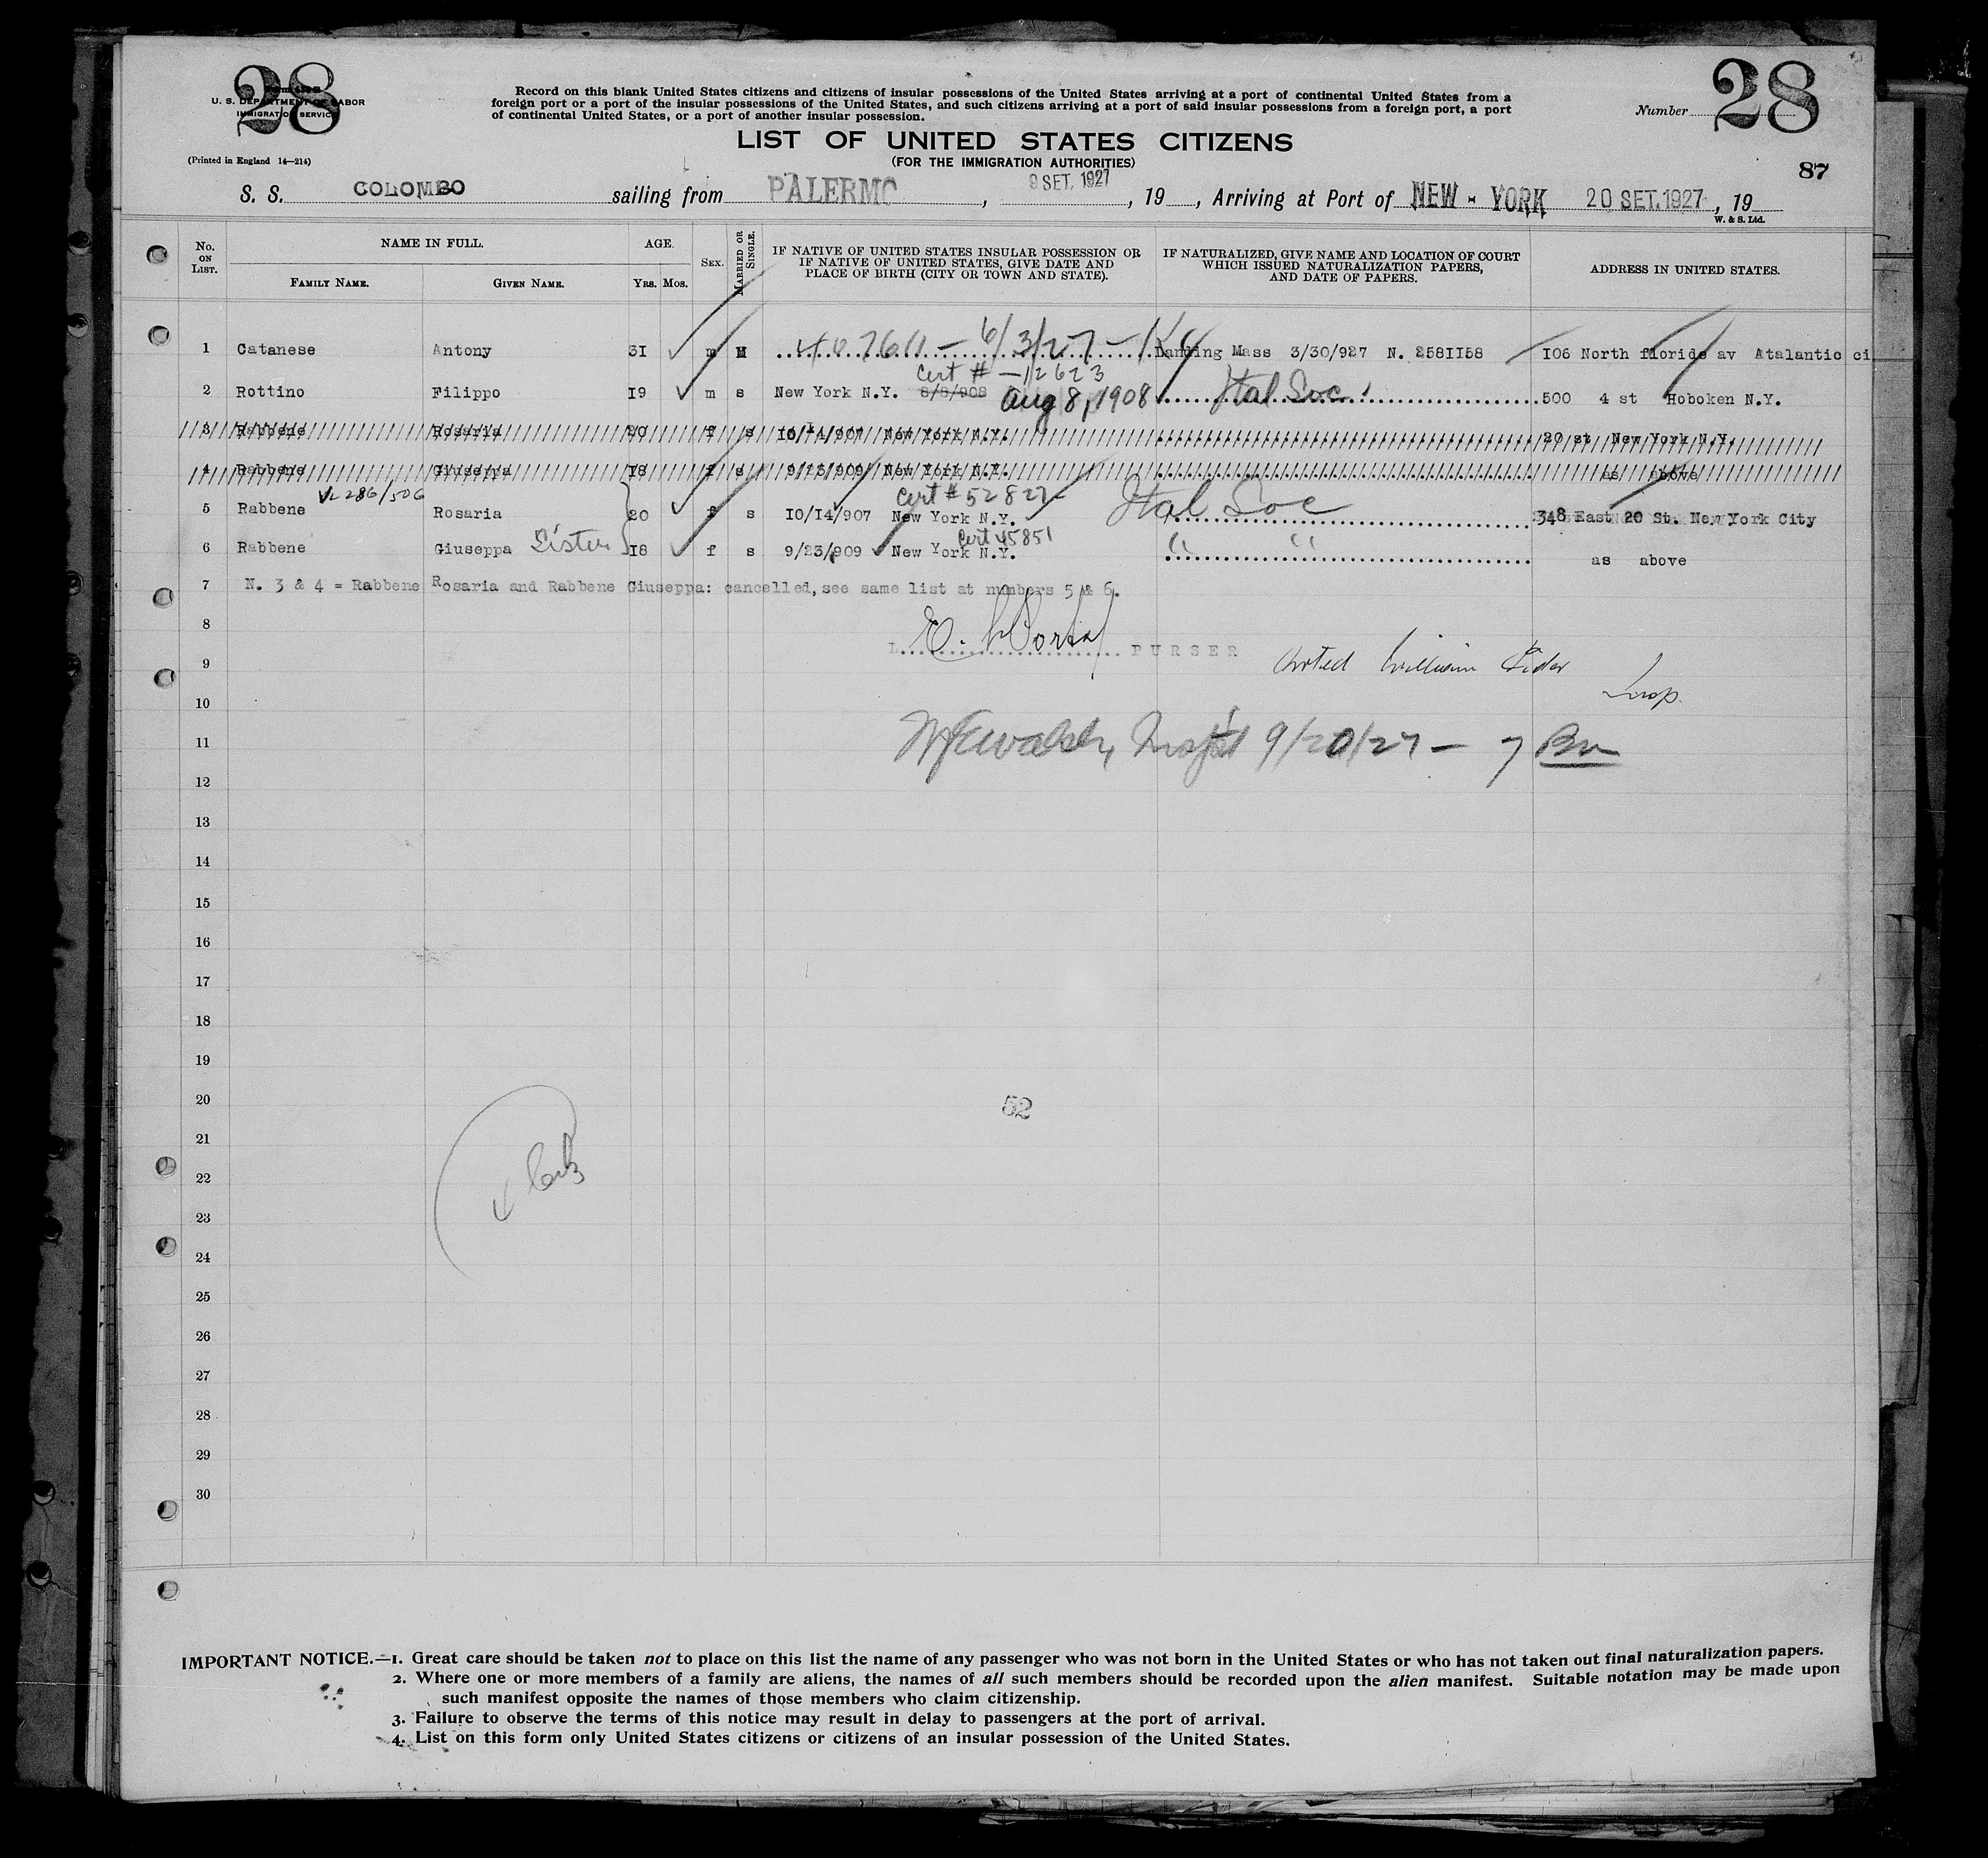 28
28
U. S. DEPARTMENT OF LABOR
IMMIGRATION SERVICE
(Printed in England 14—214)
Record on this blank United States citizens and citizens of insular possessions of the United States arriving at a port of continental United States from a
foreign port or a port of the insular possessions of the United States, and such citizens arriving at a port of said insular possessions from a foreign port, a port
of continental United States, or a port of another insular possession.
Number
LIST OF UNITED STATES CITIZENS
(FOR THE IMMIGRATION AUTHORITIES)
87
S. S. COLOMBO sailing from PALERMO, 9 SET. 1927, 19 , Arriving at Port of NEW - YORK 20 SET. 1927, 19
W. & S. Ltd.
No. ON LIST. NAME IN FULL. FAMILY NAME. GIVEN NAME. AGE. YRS. MOS. SEX. MARRIED OR SINGLE. IF NATIVE OF UNITED STATES INSULAR POSSESSION OR IF NATIVE OF UNITED STATES, GIVE DATE AND PLACE OF BIRTH (CITY OR TOWN AND STATE). IF NATURALIZED, GIVE NAME AND LOCATION OF COURT WHICH ISSUED NATURALIZATION PAPERS, AND DATE OF PAPERS. ADDRESS IN UNITED STATES.
1 Catanese Antony 31 m M 407611 — 6/3/27 — Landing Mass 3/30/927 N. 2581158 106 North floride av Atalantic ci
Cert # — 12623
2 Rottino Filippo 19 m s New York N.Y. 8/8/908 Aug 8, 1908 Ital Soc. 500 4 st Hoboken N.Y.
3 Rabbene Rosaria 20 f s 10/14/907 New York N.Y. 20 st New York N.Y.
4 Rabbene Giuseppa 18 f s 9/23/909 New York N.Y. as above
286/506 Cert # 52827
5 Rabbene Rosaria 20 f s 10/14/907 New York N.Y. Ital Soc 348 East 20 St. New York City
Cert 45851
6 Rabbene Giuseppa Sister 18 f s 9/23/909 New York N.Y. " " as above
7 N. 3 & 4 = Rabbene Rosaria and Rabbene Giuseppa: cancelled, see same list at numbers 5 & 6.
8
PURSER
9 William
Insp.
10
11 9/20/27 — 7
12
13
14
15
16
17
18
19
20 52
21
22
23
24
25
26
27
28
29
30
IMPORTANT NOTICE.—1. Great care should be taken not to place on this list the name of any passenger who was not born in the United States or who has not taken out final naturalization papers.
2. Where one or more members of a family are aliens, the names of all such members should be recorded upon the alien manifest. Suitable notation may be made upon
such manifest opposite the names of those members who claim citizenship.
3. Failure to observe the terms of this notice may result in delay to passengers at the port of arrival.
4. List on this form only United States citizens or citizens of an insular possession of the United States.